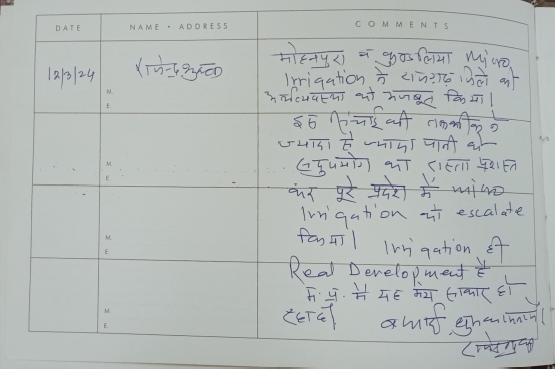 DATE NAME • ADDRESS COMMENTS
12/3/24 राजेन्द्र शुक्ल
मोहनपुरा व कुण्डलिया micro
Irrigation ने राजगढ़ जिले की
अर्थव्यवस्था को मजबूत किया।
इस सिंचाई की तकनीक ने
ज्यादा से ज्यादा पानी के
सदुपयोग का रास्ता प्रशस्त
कर पूरे प्रदेश में micro
Irrigation को escalate
किया। Irrigation ही
Real Development है
म.प्र. में यह साकार हो
रहा है। बधाई शुभकामनायें।
M.
E.
M.
E.
M.
E.
M.
E.